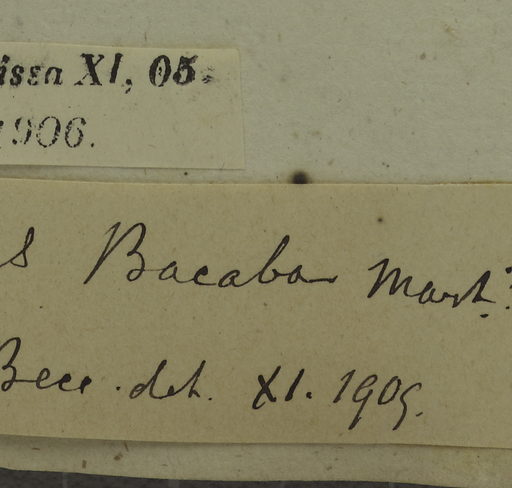 issa XI, 05.
1906.
s Bacaba Mart.?
Becc. det. XI. 1905.